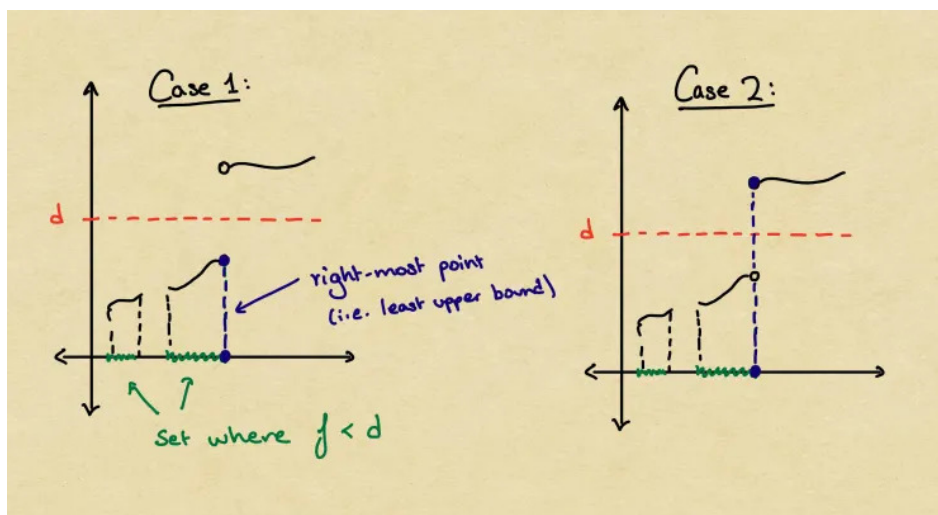 Case 1:
d
right-most point
(i.e. least upper bound)
Set where f < d
Case 2:
d